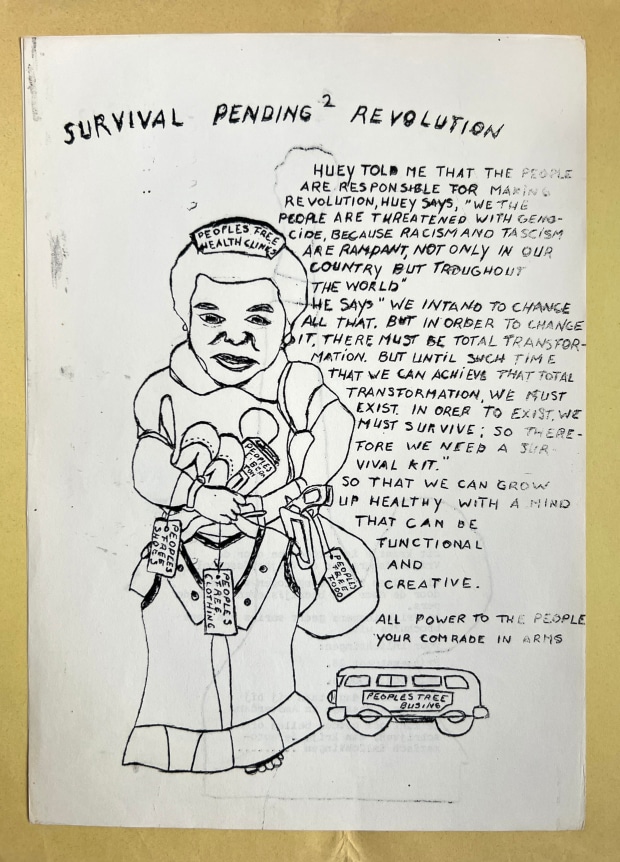 SURVIVAL PENDING 2 REVOLUTION
HUEY TOLD ME THAT THE PEOPLE
ARE RESPONSIBLE FOR MAKING
REVOLUTION, HUEY SAYS, "WE THE
PEOPLE ARE THREATENED WITH GENO-
CIDE, BECAUSE RACISM AND FASCISM
ARE RAMPANT, NOT ONLY IN OUR
COUNTRY BUT TROUGHOUT
THE WORLD"
HE SAYS "WE INTAND TO CHANGE
ALL THAT. BUT IN ORDER TO CHANGE
IT, THERE MUST BE TOTAL TRANSFOR-
MATION. BUT UNTIL SUCH TIME
THAT WE CAN ACHIEVE THAT TOTAL
TRANSFORMATION, WE MUST
EXIST. IN ORER TO EXIST, WE
MUST SURVIVE; SO THERE-
FORE WE NEED A SUR-
VIVAL KIT."
SO THAT WE CAN GROW
UP HEALTHY WITH A MIND
THAT CAN BE
FUNCTIONAL
AND
CREATIVE.
ALL POWER TO THE PEOPLE
YOUR COMRADE IN ARMS
PEOPLES FREE
HEALTH CLINICS
PEOPLES
PEOPLES
FREE
SHOES
PEOPLES
FREE
CLOTHING
PEOPLES
FREE
FOOD
PEOPLES FREE
BUSING